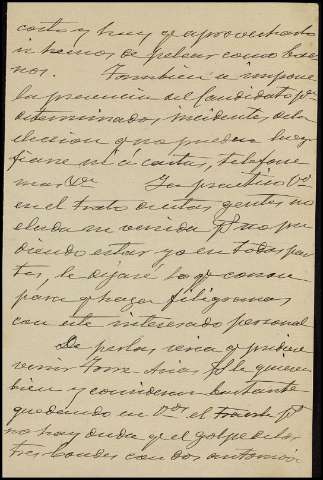 corta y hay q aprovecharla
si hemos de pelear como bue
nos. Tambien se impone
la presencia del Candidato pa
determinados, incidentes, de la
eleccion q no pueden
fiarse ni á cartas, telefone
mas Va Ya practico Vd
en el trato de estas gentes no
eluda su venida
diendo estar yo en todas par
tes, le dejaré lo q
para q haga filigranas
con este interesado personal
De perlas seria q pudiese
venir Torre Arias le quieren
bien y convienen bastante
quedando en Vds el
no hay duda q el golpe de los
tres Condes con dos automovi